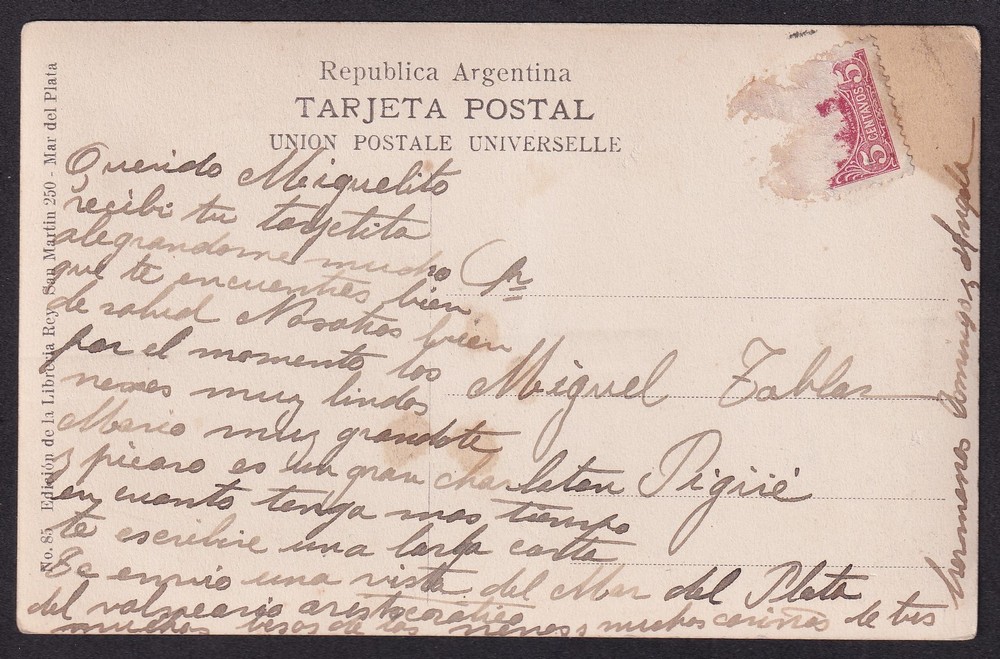 Republica Argentina
TARJETA POSTAL
UNION POSTALE UNIVERSELLE
5 CENTAVOS 5
No. 85 Edición de la Libreria Rey, San Martin 250 - Mar del Plata
Querido Miguelito
recibi tu tarjetita
alegrandome mucho
que te encuentres bien
de salud Nosotros bien
por el momento, los
nenes muy lindos
Mario muy grandote
y picaro es un gran charlatan
en cuanto tenga mas tiempo
te escribire una larga carta
Te envio una vista del Mar del Plata
del valneario aristocratico
muchos besos de los nenes y muchos cariños de tus
hermanos Domingo y Angela
Sr
Miguel Tablar
Pigüé